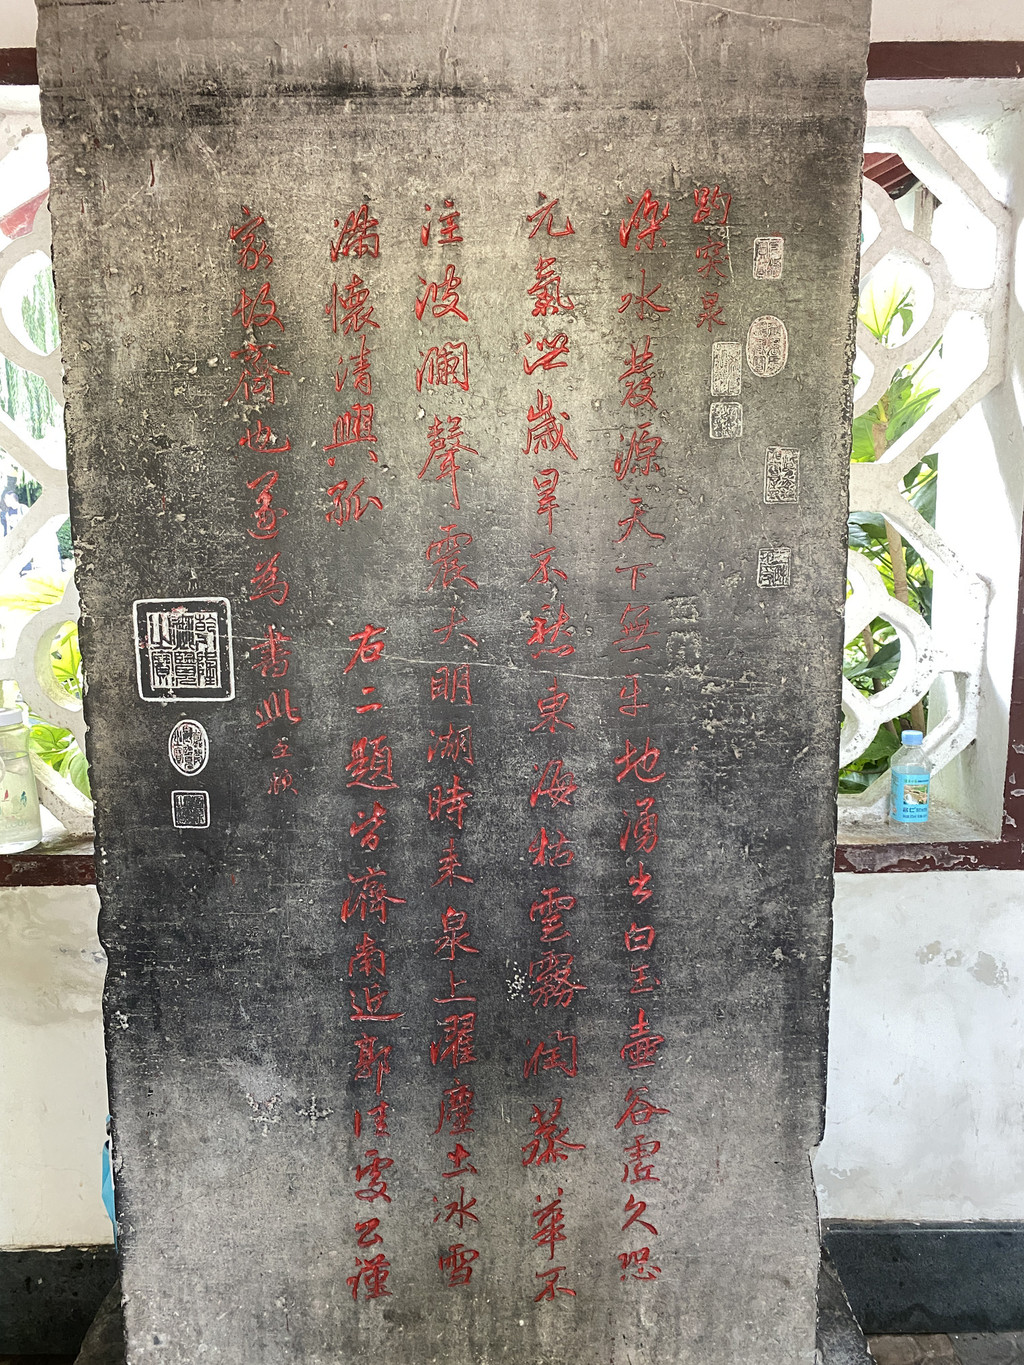 趵突泉
濼水發源天下無平地湧出白玉壺谷虛久恐
元氣泄歲旱不愁東海枯雲霧潤蒸華不
注波瀾聲震大明湖時來泉上濯塵土冰雪
滿懷清興孤 右二題皆濟南近郭佳處公謹
家故齊也遂為書此 孟頫
乾隆御覽之寶